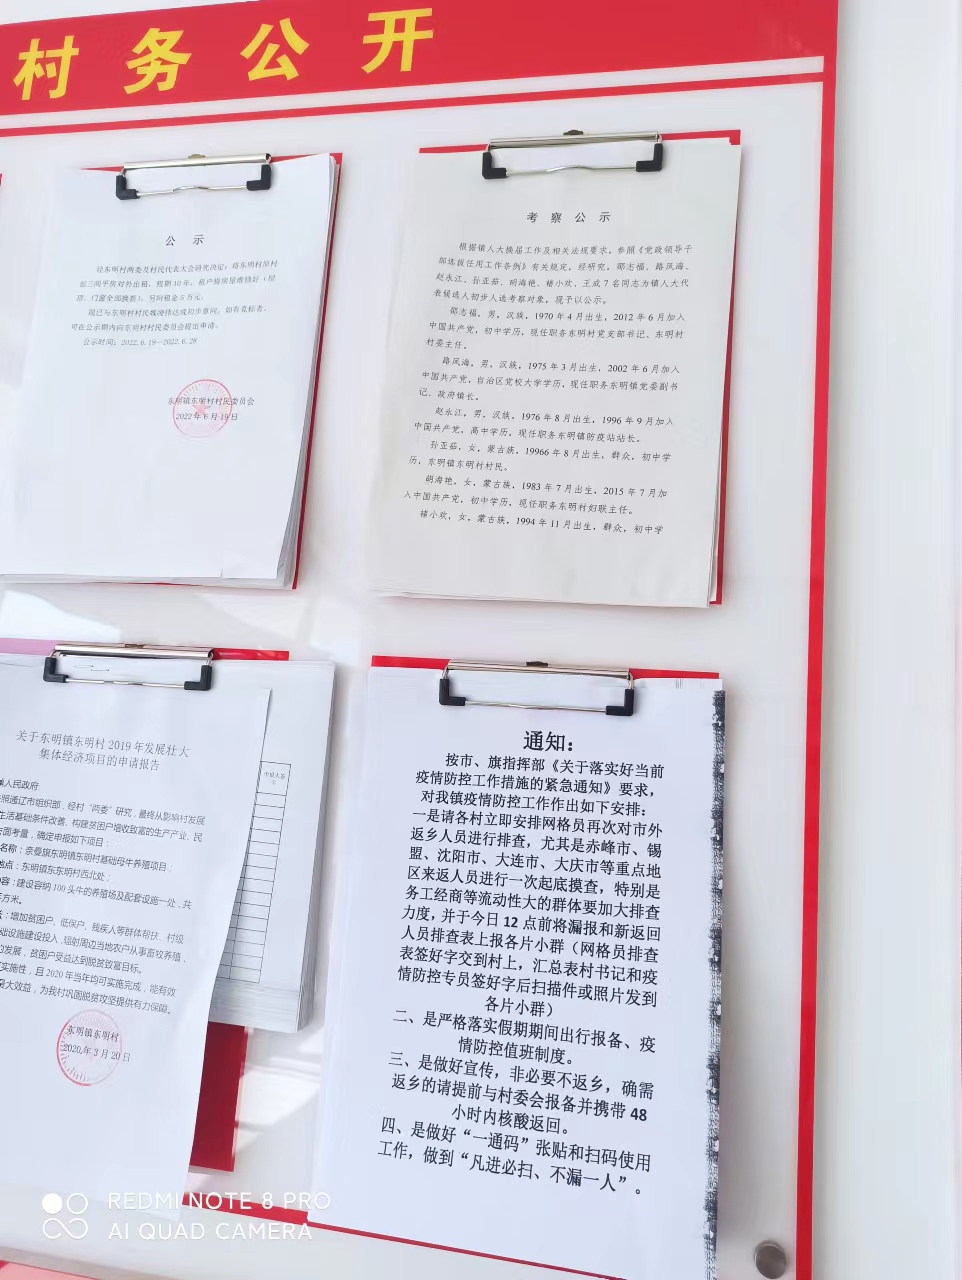 村务公开
公 示
经东明村两委及村民代表大会研究决定：将东明村原村
部三间平房对外出租，租期10年，租户将房屋维修好（房
顶、门窗全部换新），另向租金5万元。
现已与东明村村民魏晓伟达成初步意向，如有竞标者，
可在公示期内向东明村村民委员会提出申请。
公示时间：2022.6.19—2022.6.28
东明镇东明村村民委员会
2022年6月19日
考 察 公 示
根据镇人大换届工作及相关法规要求，参照《党政领导干
部选拔任用工作条例》有关规定，经研究，邵志福、路凤海、
赵永江、孙亚茹、胡海艳、褚小欢、王成7名同志为镇人大代
表候选人初步人选考察对象，现予以公示。
邵志福，男，汉族，1970年4月出生，2012年6月加入
中国共产党，初中学历，现任职务东明村党支部书记、东明村
村委主任。
路凤海，男，汉族，1975年3月出生，2002年6月加入
中国共产党，自治区党校大学学历，现任职务东明镇党委副书
记、政府镇长。
赵永江，男，汉族，1976年8月出生，1996年9月加入
中国共产党，高中学历，现任职务东明镇防疫站站长。
孙亚茹，女，蒙古族，19966年8月出生，群众，初中学
历，东明镇东明村村民。
胡海艳，女，蒙古族，1983年7月出生，2015年7月加
入中国共产党，初中学历，现任职务东明村妇联主任。
褚小欢，女，蒙古族，1994年11月出生，群众，初中学
关于东明镇东明村2019年发展壮大
集体经济项目的申请报告
人民政府：
照通辽市组织部，经村“两委”研究，最终从影响村发展
生活基础条件改善，构建贫困户增收致富的生产产业、民
方面考量，确定申报如下项目：
名称：奈曼旗东明镇东明村基础母牛养殖项目；
地点：东明镇东东明村西北处；
内容：建设容纳100头牛的养殖场及配套设施一处，共
平方米。
益：增加贫困户、低保户、残疾人等群体帮扶、村级
础设施建设投入，辐射周边当地农户从事畜牧养殖，
的发展，贫困户受益达到脱贫致富目标。
实施性，且2020年当年均可实施完成，能有效
最大效益，为我村巩固脱贫攻坚提供有力保障。
东明镇东明村
2020年3月20日
通知：
按市、旗指挥部《关于落实好当前
疫情防控工作措施的紧急通知》要求，
对我镇疫情防控工作作出如下安排：
一是请各村立即安排网格员再次对市外
返乡人员进行排查，尤其是赤峰市、锡
盟、沈阳市、大连市、大庆市等重点地
区来返人员进行一次起底摸查，特别是
务工经商等流动性大的群体要加大排查
力度，并于今日12点前将漏报和新返回
人员排查表上报各片小群（网格员排查
表签好字交到村上，汇总表村书记和疫
情防控专员签好字后扫描件或照片发到
各片小群）
二、是严格落实假期期间出行报备、疫
情防控值班制度。
三、是做好宣传，非必要不返乡，确需
返乡的请提前与村委会报备并携带48
小时内核酸返回。
四、是做好“一通码”张贴和扫码使用
工作，做到“凡进必扫、不漏一人”。
REDMI NOTE 8 PRO
AI QUAD CAMERA